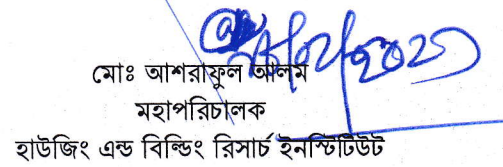 মোঃ আশরাফুল আলম
মহাপরিচালক
হাউজিং এন্ড বিল্ডিং রিসার্চ ইনস্টিটিউট